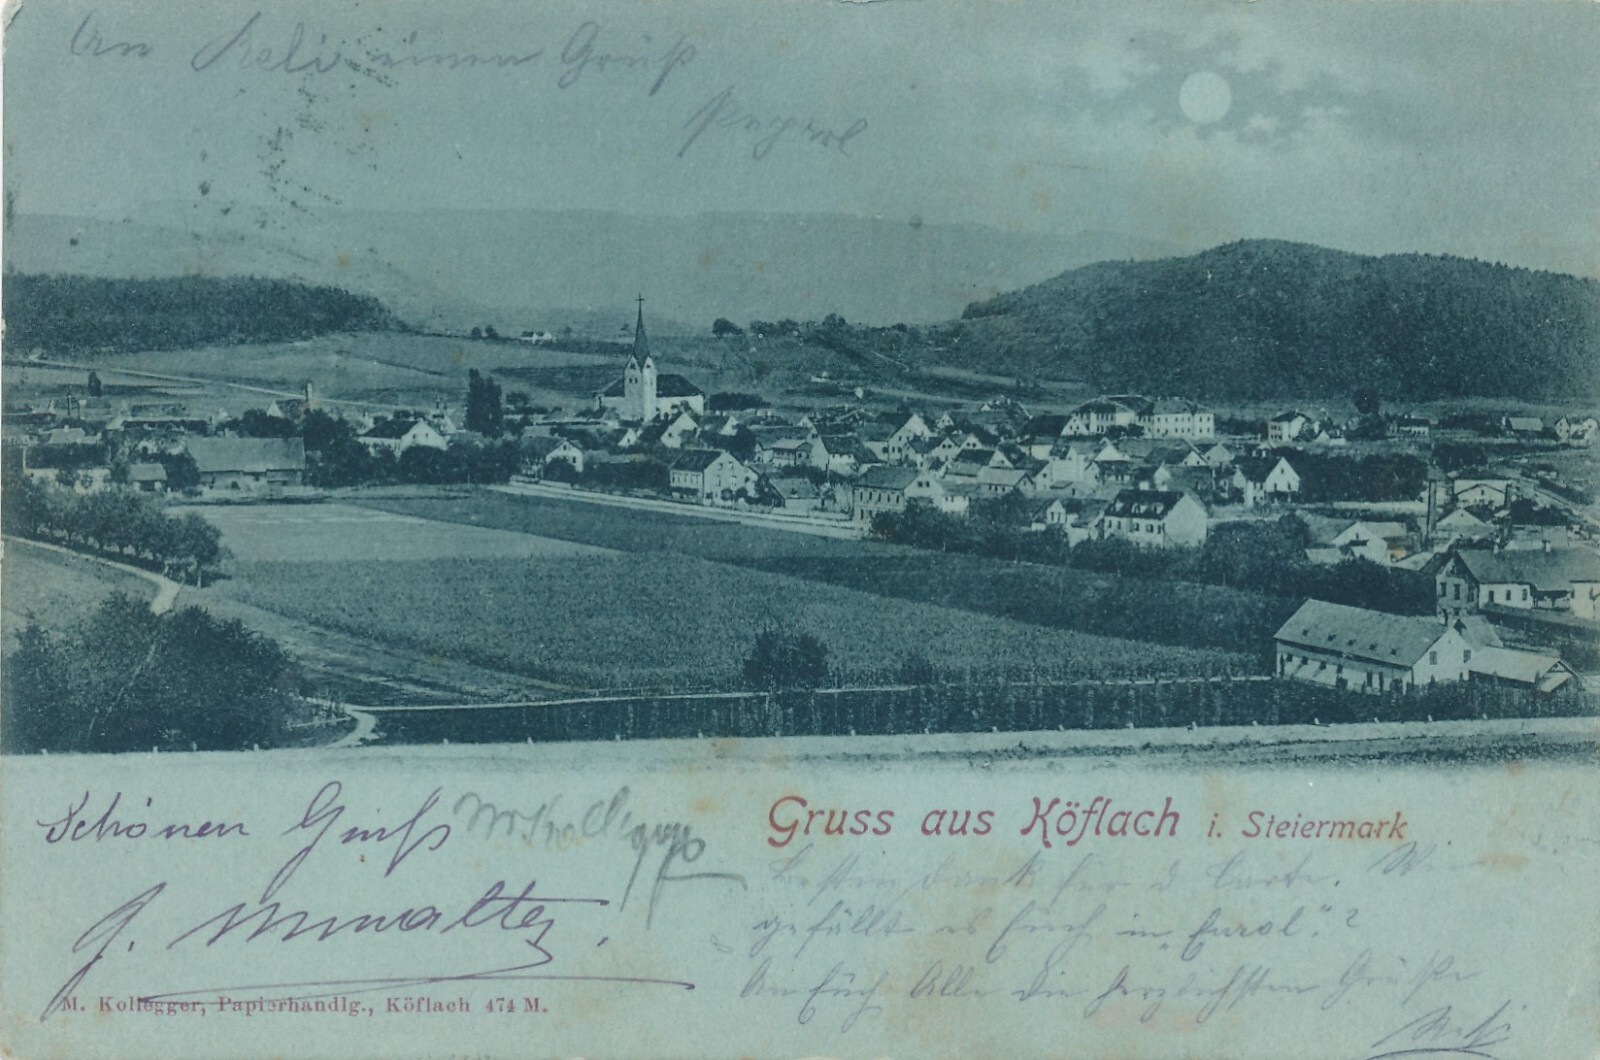 An Reli einen Gruß
Schönen Gruß
Gruss aus Köflach i. Steiermark
Besten Dank für d. Carte. Wie
gefällt es Euch in „Tirol“?
An Euch Alle die herzlichsten Grüße
M. Kollegger, Papierhandlg., Köflach 474 M.